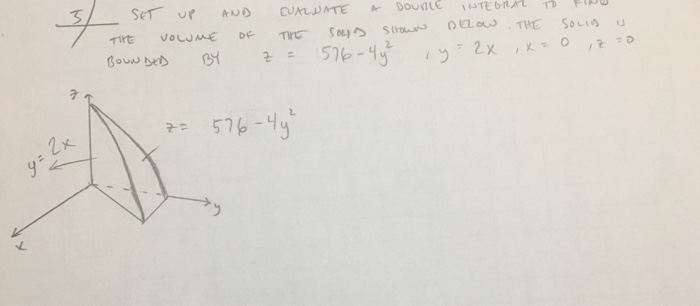 5/ SET UP AND EVALUATE A DOUBLE INTEGRAL TO FIND
THE VOLUME OF THE SOLID SHOWN BELOW. THE SOLID IS
BOUNDED BY z = 576-4y², y = 2x, x = 0, z = 0
z
z = 576-4y²
y = 2x
y
x